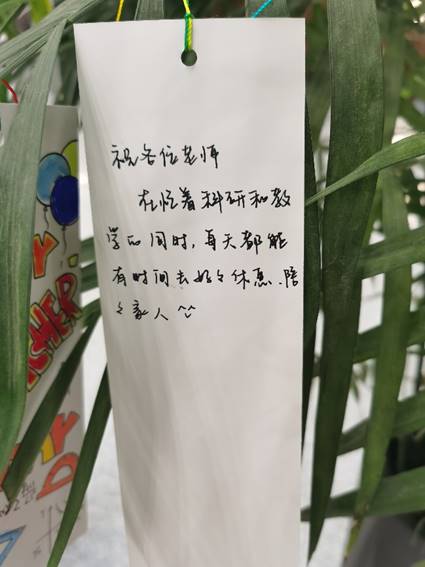 祝各位老师
在忙着科研和教
学的同时,每天都能
有时间去好好休息、陪
々家人^^